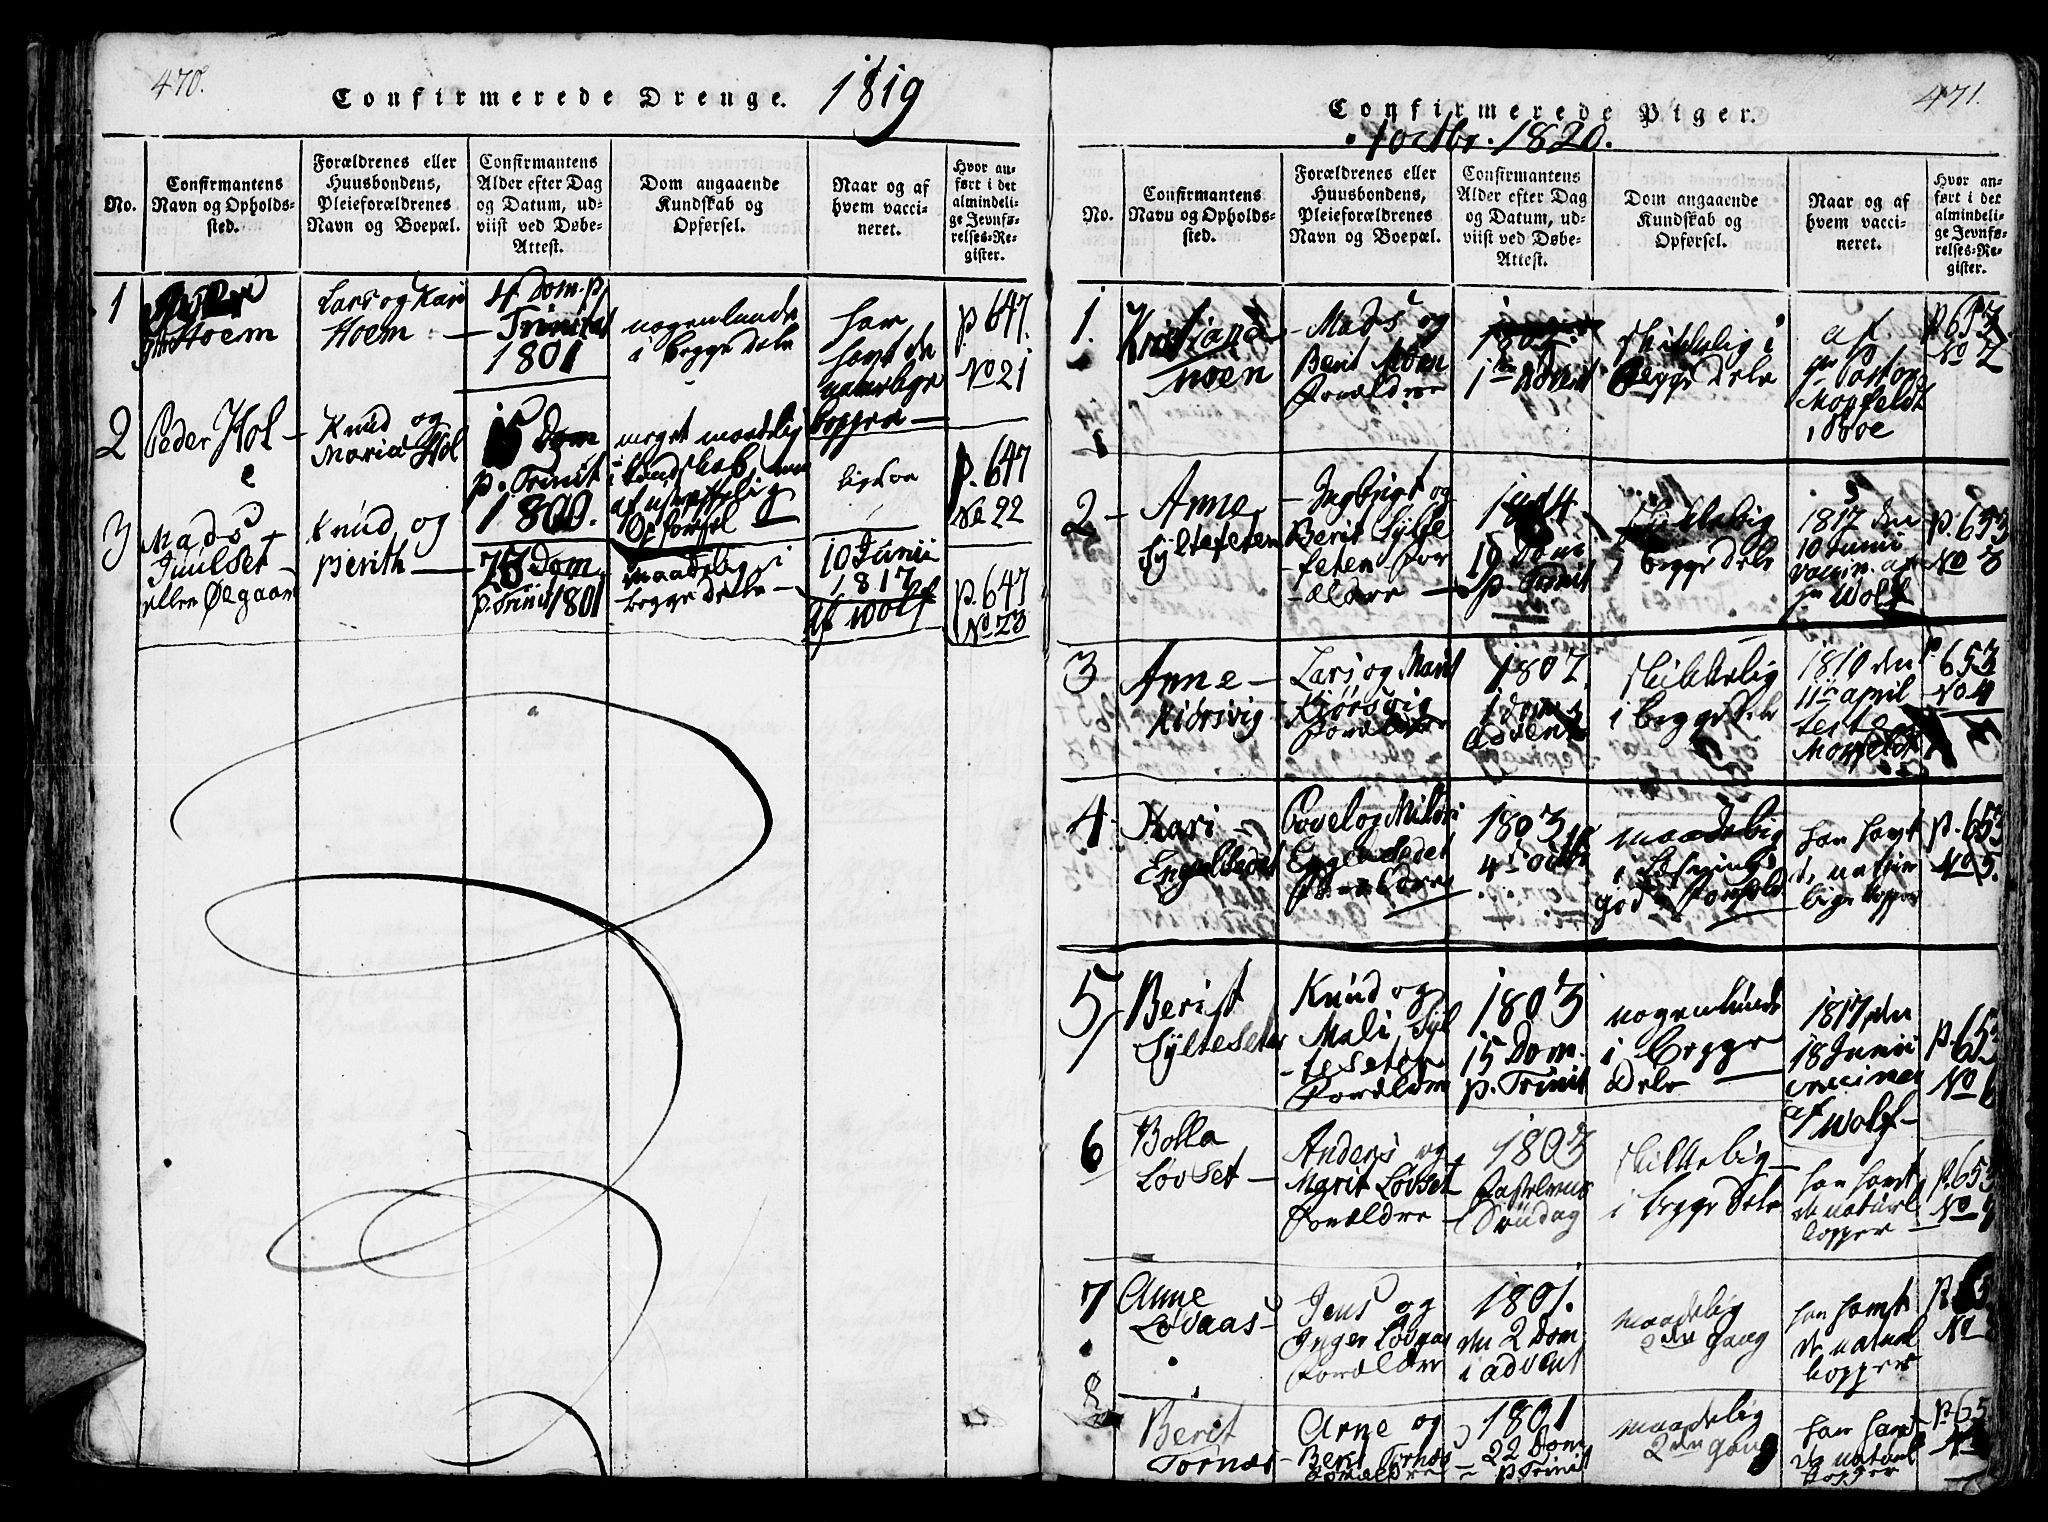 470.
Confirmerede Drenge. 1819
No.
Confirmantens
Navn og Opholds-
sted.
Forældrenes eller
Huusbondens,
Pleieforældrenes
Navn og Boepæl.
Confirmantens
Alder efter Dag
og Datum, ud-
viist ved Døbe-
Attest.
Dom angaaende
Kundskab og
Opførsel.
Naar og af
hvem vacci-
neret.
Hvor an-
ført i det
almindeli-
ge Jevnfø-
relses-Re-
gister.
1
Hoem
Lars og Kari
Hoem
4 Dom. p.
Trinitat
1801
nogenlunde
i begge Dele
har
havt de
naturlige
kopper
p. 647.
No 21
2
Peder Hol
Knud og
Maria Hol
15 Dom
p. Trinit
1800.
meget maadelig
i Kundskab, men
af ustraffelig
Opførsel
ligesaa
p. 647
No 22
3
Mads
Juulset
eller Øegaar
Knud og
Berith
Dom
p. Trinit 1801
maadelig i
begge Dele
10 Junii
1817
af Wolf
p. 647
No 23
471.
Confirmerede Piger.
1 octbr. 1820.
No.
Confirmantens
Navn og Opholds-
sted.
Forældrenes eller
Huusbondens,
Pleieforældrenes
Navn og Boepæl.
Confirmantens
Alder efter Dag
og Datum, ud-
viist ved Døbe-
Attest.
Dom angaaende
Kundskab og
Opførsel.
Naar og af
hvem vacci-
neret.
Hvor an-
ført i det
almindeli-
ge Jevnfø-
relses-Re-
gister.
1.
Kristiana
moen
Mads og
Berit Moen
Forældre
1802.
1ste Advent
skikkelig i
Begge Dele
af
Hr Pastor
p. 653
No 2
2
Anne
Sylteseten
Ingbrigt og
Berit Sylte
seten For
ældre
1804
19 Dom
p Trinit
skikkelig
i begge Dele
1817 den
10 Junii
vaccin. af
Hr Wolf
p. 653
No 3
3
Anne
Kiörsvig
Lars og Marit
Kjörsvig
Forældre
1802.
1 dom i
advent
skikkelig
i begge Dele
1810 den
11 april
p 653
No 4
4
Kari
Engelsedet
Povel og
Engelsedet
Forældre
1803
4 octb
maadelig
i Læsning
god Forhold
har havt
de natur
lige kopper
p. 653
No 5.
5
Berit
Sylteseter
Knud og
Mali Syl
teseter
Forældre
1803
15 Dom.
p. Trinit
nogenlunde
i begge
Dele
1817 den
18 Junii
vaccineret
af Wolf
p. 653
No 6
6
Bolla
Lovset
Anders og
Marit Lovset
Forældre
1803
Fastelavns
Søndag
skikkelig
i begge Dele
har havt
de naturl
kopper
p. 653
No
7
Anne
Lovaas
Jens og
Inger Lovaas
Forældre
1801.
den 2 Dom
i advent
maadelig
2den gang
har havt
de naturl
kopper
No
8
Berit
Tornæs
Arne og
Berit Tornæs
Forældre
1801
22 Dom
p Trinit
maadelig
2den gang
har havt
de naturl
kopper
p. 65
No